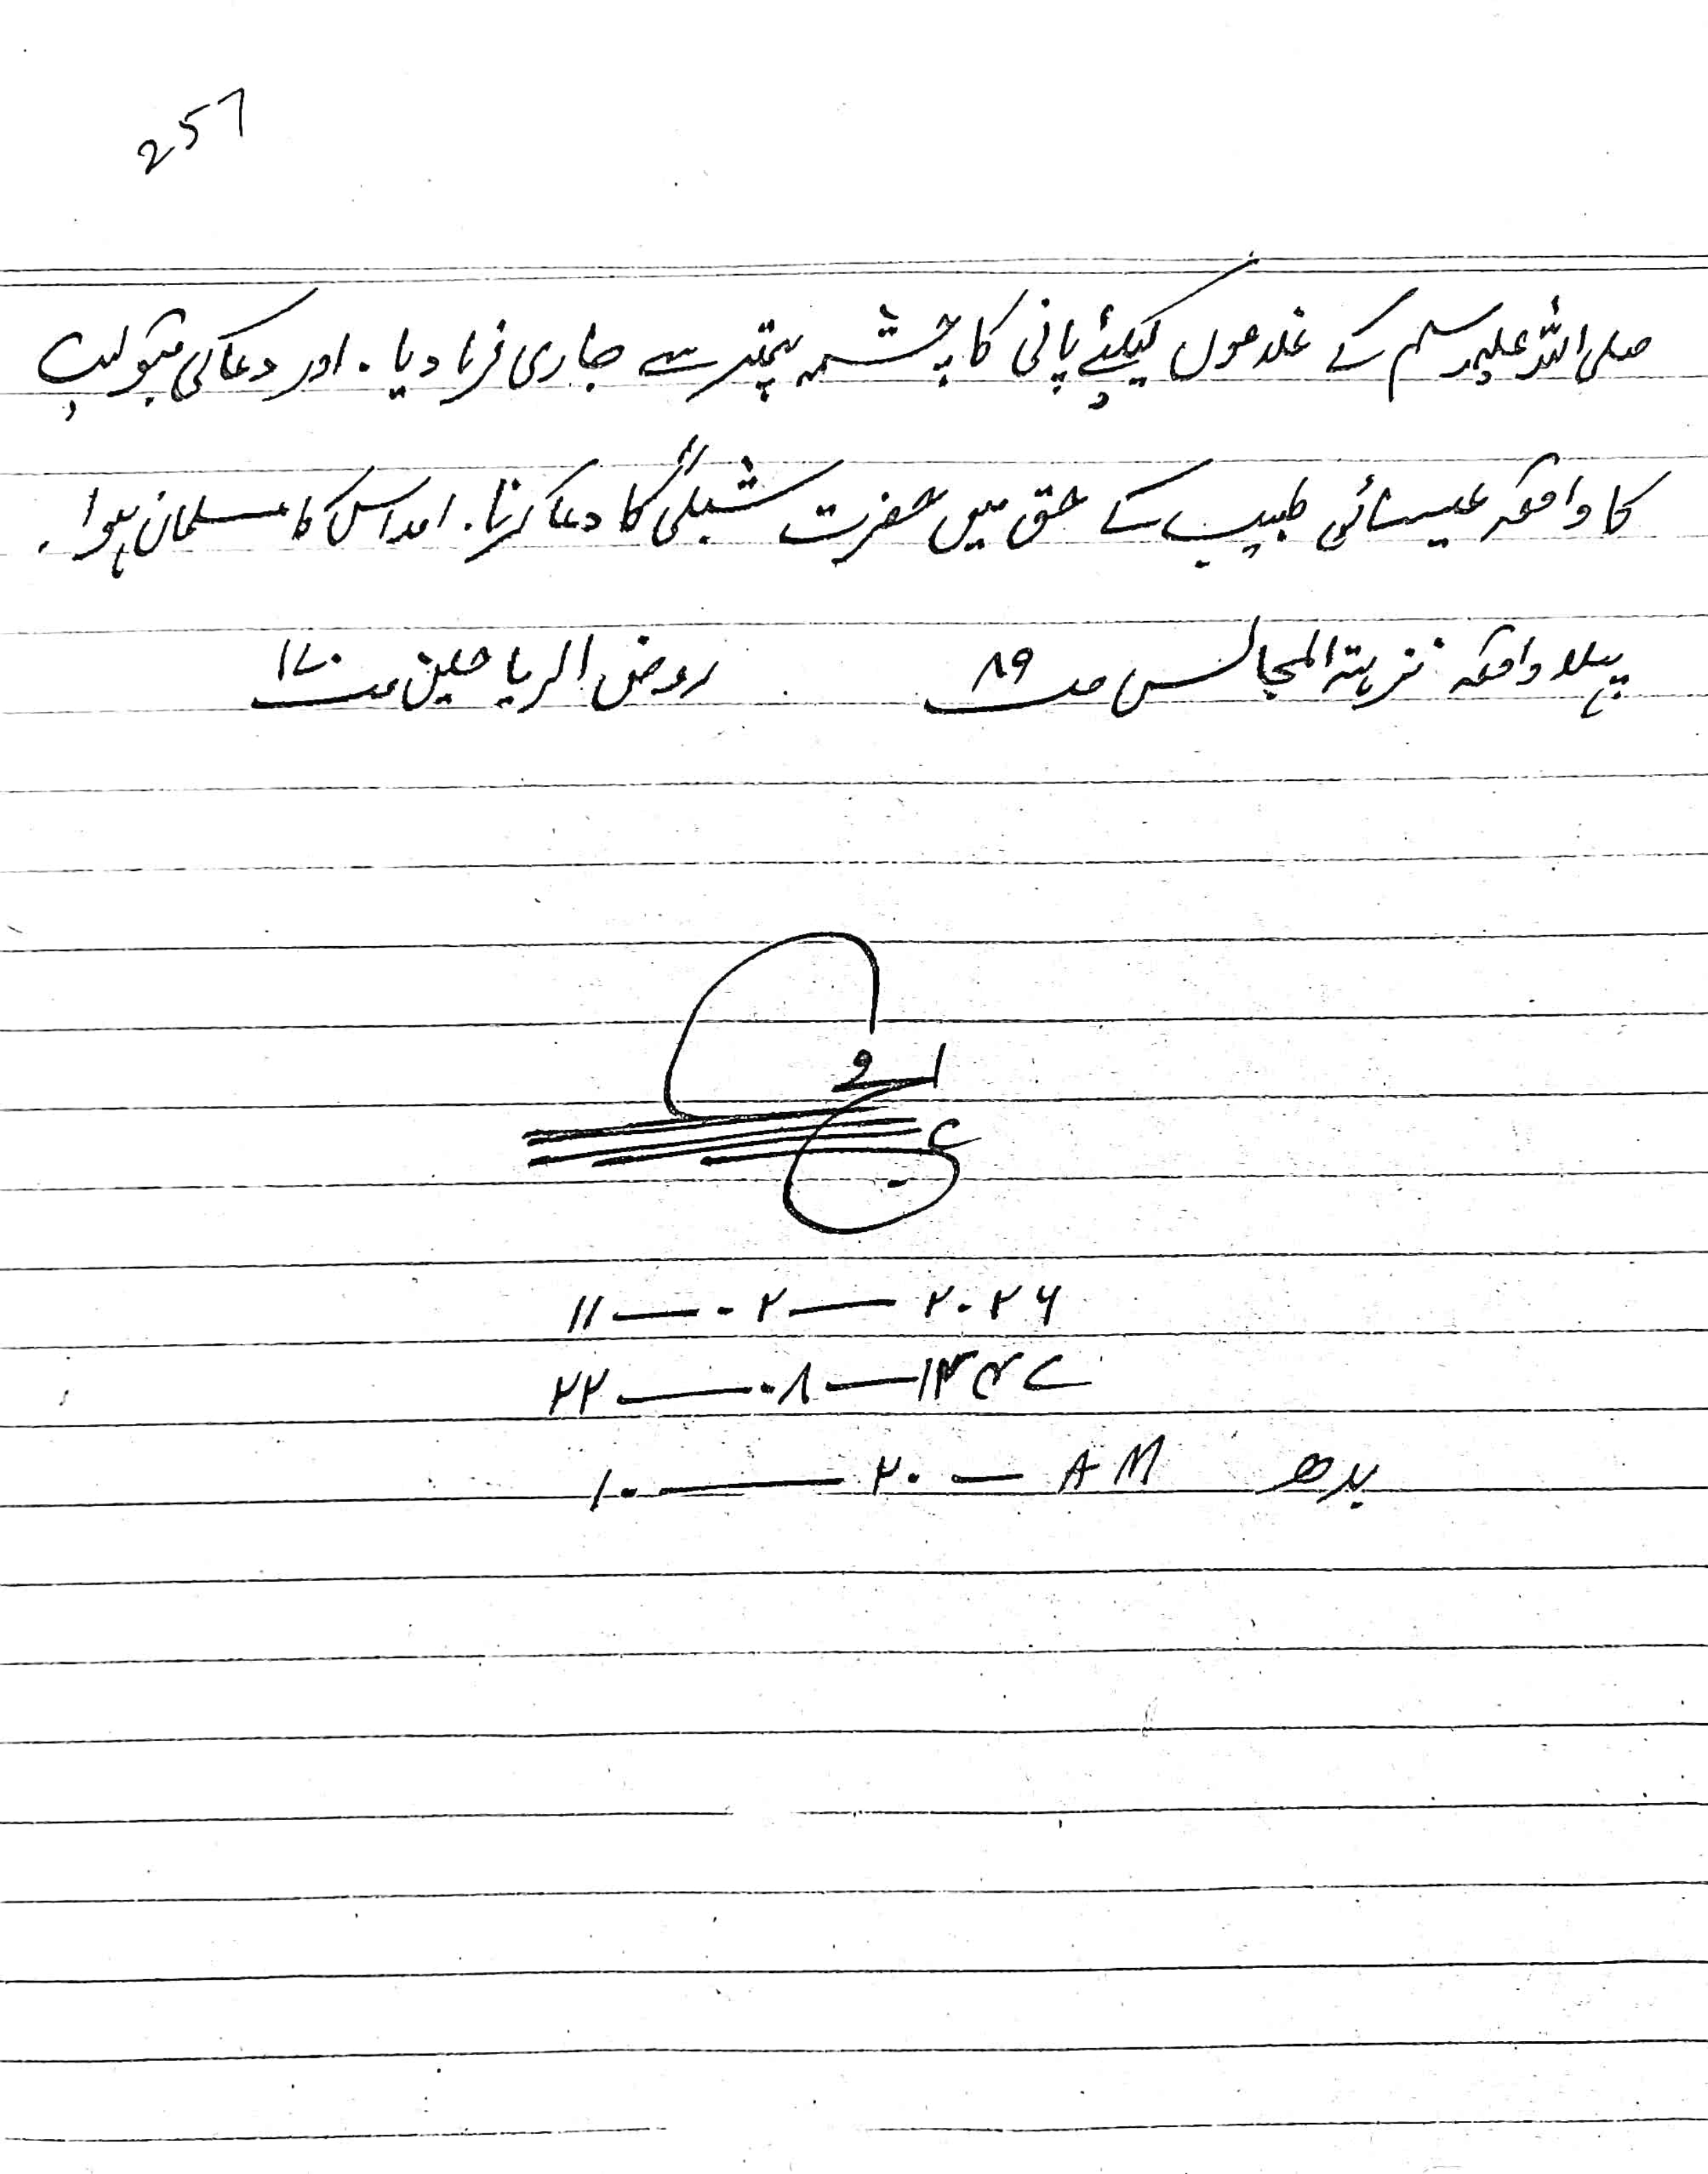 257
صلی اللہ علیہ وسلم کے غلاموں کیلئے پانی کا چشمہ پتھر سے جاری فرما دیا۔ اور دعا کی قبولیت
کا واقعہ عیسائی طبیب کے حق میں حضرت شبلیؒ کا دعا کرنا۔ اور اس کا مسلمان ہوا۔
پہلا واقعہ نزہتہ المجالس صہ ۸۹ روض الریاحین صہ ۱۷۰
۱۱ — ۰۲ — ۲۰۲۶
۲۲ — ۰۸ — ۱۴۴۷
۱۰ — ۲۰ — AM بدھ